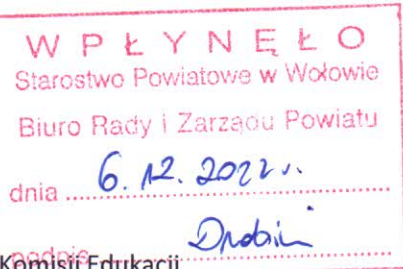 WPŁYNĘŁO
Starostwo Powiatowe w Wołowie
Biuro Rady i Zarządu Powiatu
dnia 6.12.2022 r.
podpis
Komisji Edukacji